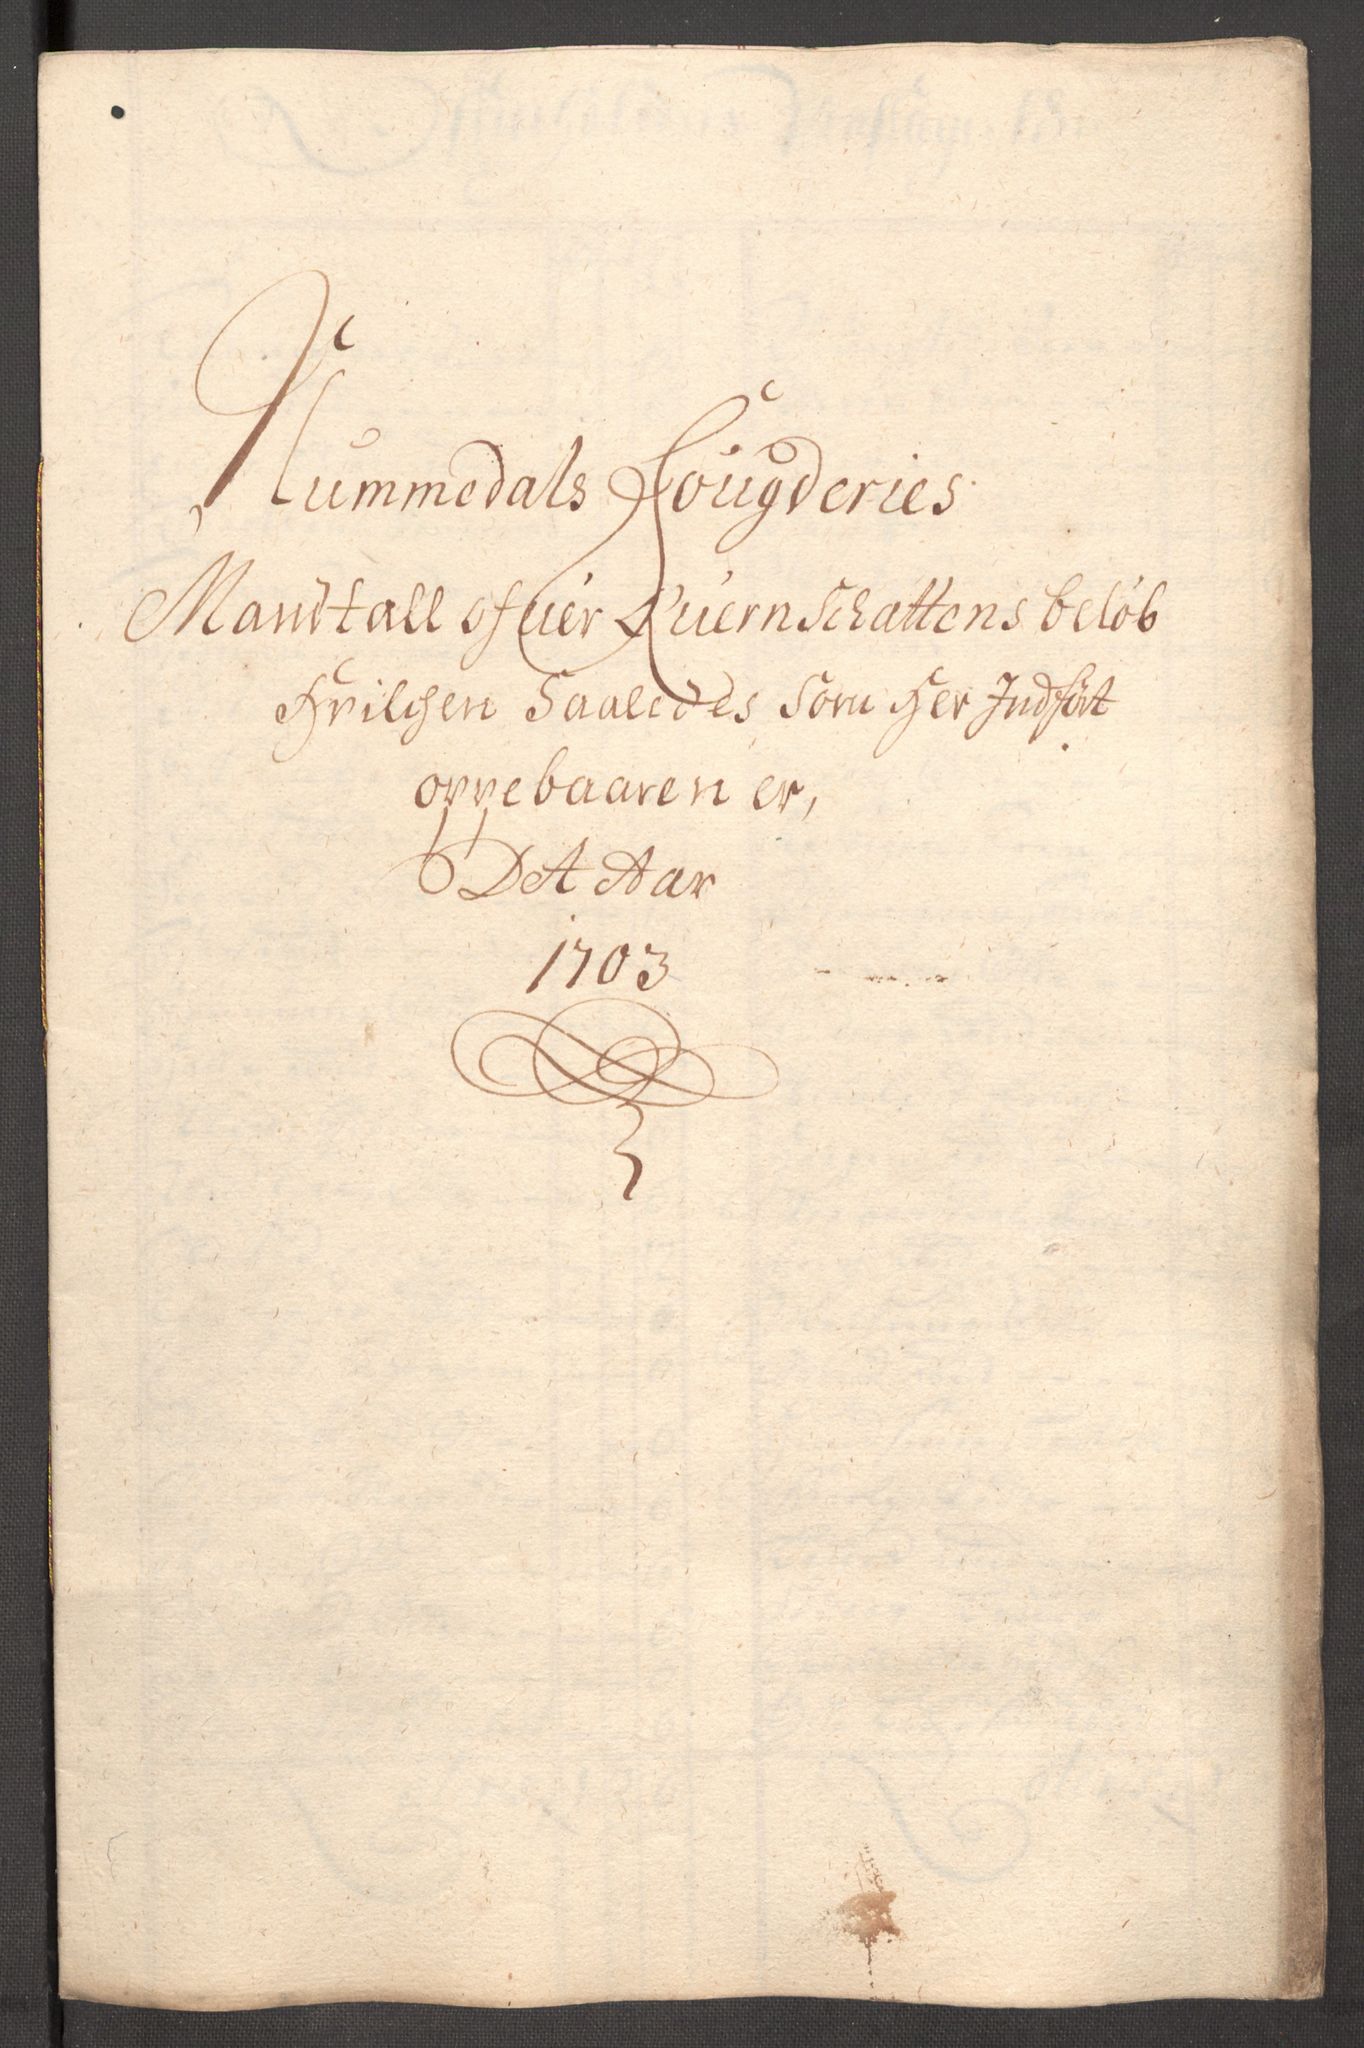 Nummedals Fougderies
Mandtall ofuer Quernschattens beløb
Hvilchen Saaledes Som Her Indført
oppebaaren er,
Pro A Aar
1703